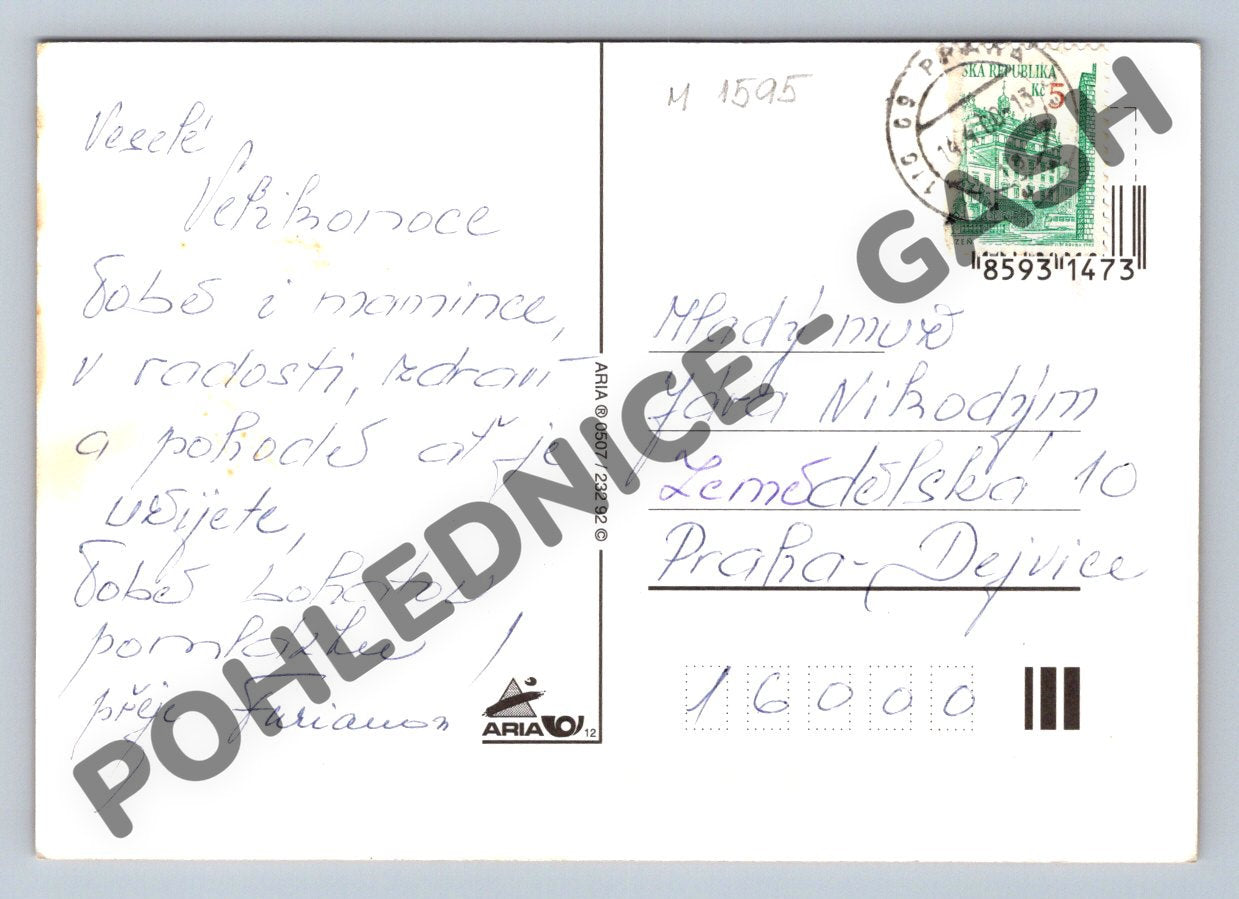 Veselé
Velikonoce
Tobě i mamince,
v radosti, zdraví
a pohodě ať je
užijete,
Tobě bohatou
pomlázku !
přeje
M 1595
110 09 PRAHA
14.4.00-13
SKA REPUBLIKA
Kč 5
8593 1473
Mladý muž
Jára Nikodým
Zemědělská 10
Praha-Dejvice
16000
ARIA ® 0507 / 232 92 ©
ARIA
12
POHLEDNICE - GASH